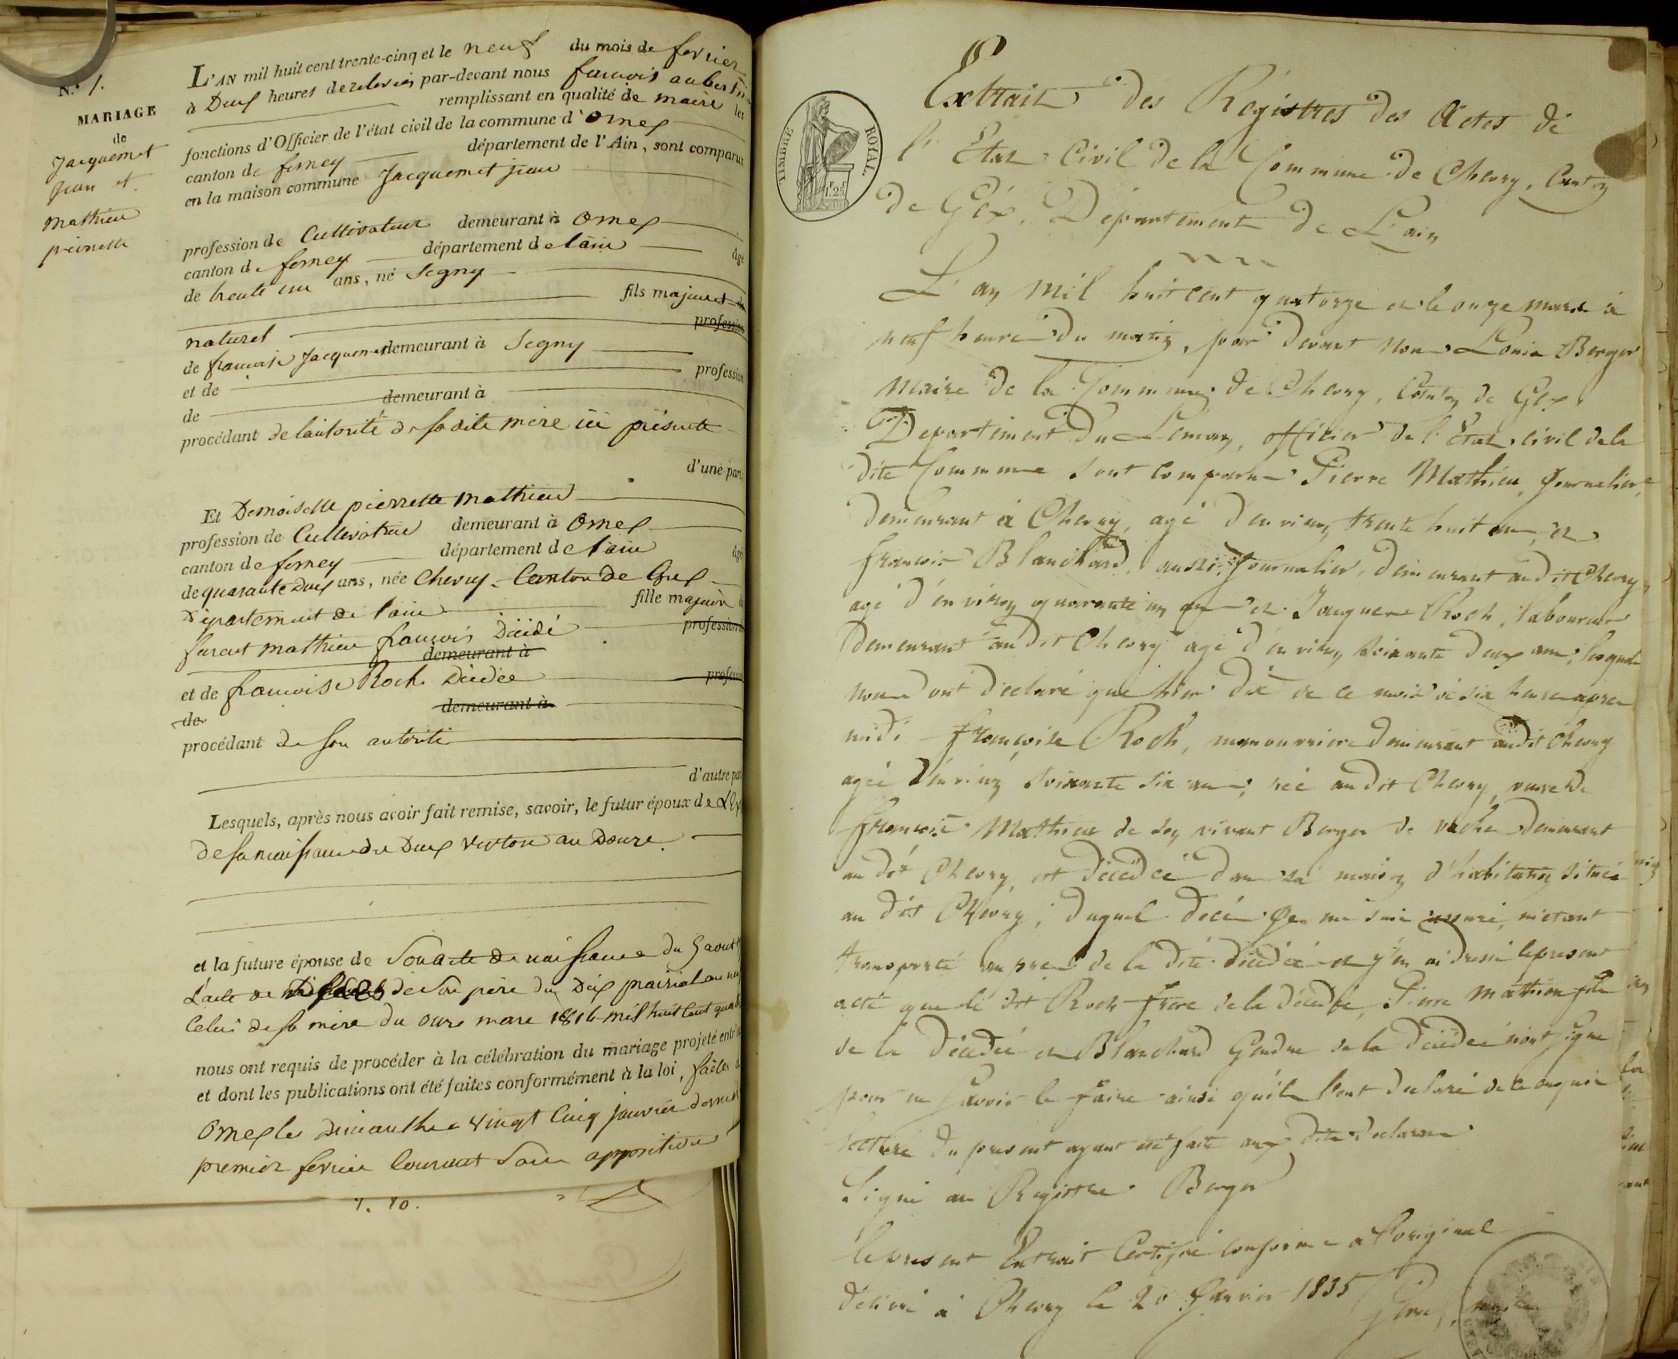 N.° 1.
MARIAGE
de
Jacquemet
Jean et
Mathieu
pierrette
L'AN mil huit cent trente-cinq et le neuf du mois de fevrier
à Deux heures de relevée par-devant nous françois aubert
remplissant en qualité de maire les
fonctions d'Officier de l'état civil de la commune d'Ornex
canton de ferney département de l'Ain, sont comparus
en la maison commune Jacquemet jean
profession de Cultivateur demeurant à Ornex
canton de ferney département de l'ain âgé
de trente un ans, né Segny
fils majeur et
naturel profession
de francoise Jacquemet demeurant à Segny
et de profession
de demeurant à
procédant de l'autorité de sa dite mère ici présente
d'une part
Et Demoiselle pierrette Mathieu
profession de Cultivatrice demeurant à Ornex
canton de ferney département de l'ain âgé
de quarante Deux ans, née Chevry Canton de Gex
Département de l'ain fille majeure
feu mathieu françois Décédé profession
demeurant à
et de francoise Roch Décédée profession
de demeurant à
procédant de son autorité
d'autre part
Lesquels, après nous avoir fait remise, savoir, le futur époux de
de sa naissance du Deux ventose an Douze
et la future épouse de Son acte de naissance du 5 aout
L'acte de décès de Son père du Dix prairial an
Celui de sa mère du onze mars 1816 mil huit cent
nous ont requis de procéder à la célébration du mariage projeté entre
et dont les publications ont été faites conformément à la loi, faites
Ornex les dimanches vingt Cinq janvier dernier
premier fevrier Courant Sans opposition
TIMBRE ROYAL.
Extrait des Régistres des Actes de
l'Etat Civil de la Commune de Chevry, Canton
de Gex, Département de L'ain
L'an mil huit cent quatorze et le onze mars à
neuf heures du matin, par devant nous Louis Berger
Maire de la Commune de Chevry, Canton de Gex,
Département du Léman, officier de l'Etat civil de la
dite Commune sont comparu Pierre Mathieu, Journalier,
demeurant à Chevry, agé d'environ trente huit ans et
francois Blanchard, aussi Journalier, demeurant audit Chevry,
agé d'environ quarante un ans et Jacques Roch, laboureur
demeurant audit Chevry agé d'environ soixante deux ans; lesquels
nous ont déclaré que hier dix de ce mois à six heures après
midi francoise Roch, manouvriere demeurant audit Chevry
agée d'environ soixante six ans, née audit Chevry, veuve de
francois Mathieu de son vivant Berger de vache demeurant
audit Chevry, est décédée dans sa maison d'habitation située
audit Chevry, duquel décé je me suis assuré, m'étant
transporté auprès de la dite décédée et j'en ai dressé le présent
acte que le dit Roch frère de la décédée, Pierre Mathieu fils
de la décédée et Blanchard Gendre de la décédée n'ont signé
pour ne savoir le faire ainsi qu'ils l'ont déclaré de ce enquis
lecture du présent ayant été faite aux dits déclarans
Signé au Registre Berger
le présent Extrait Certifié conforme à l'original
délivré à Chevry le 20 Janvier 1835